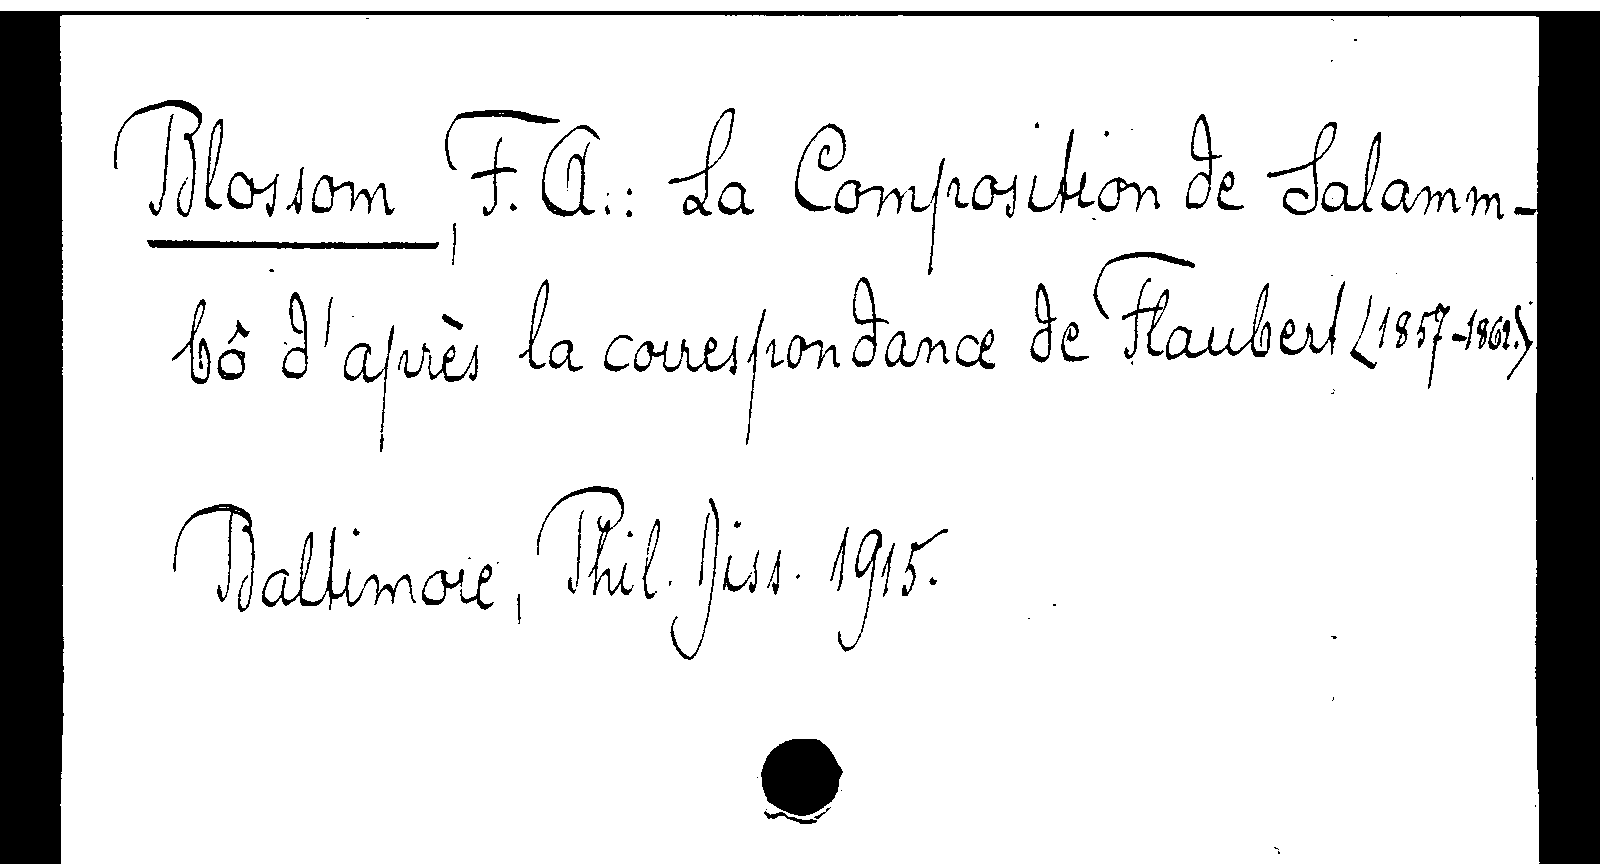 Blossom, F. A.: La Composition de Salamm-
bô d'après la correspondance de Flaubert (1857-1862.)
Baltimore, Phil. Diss. 1915.